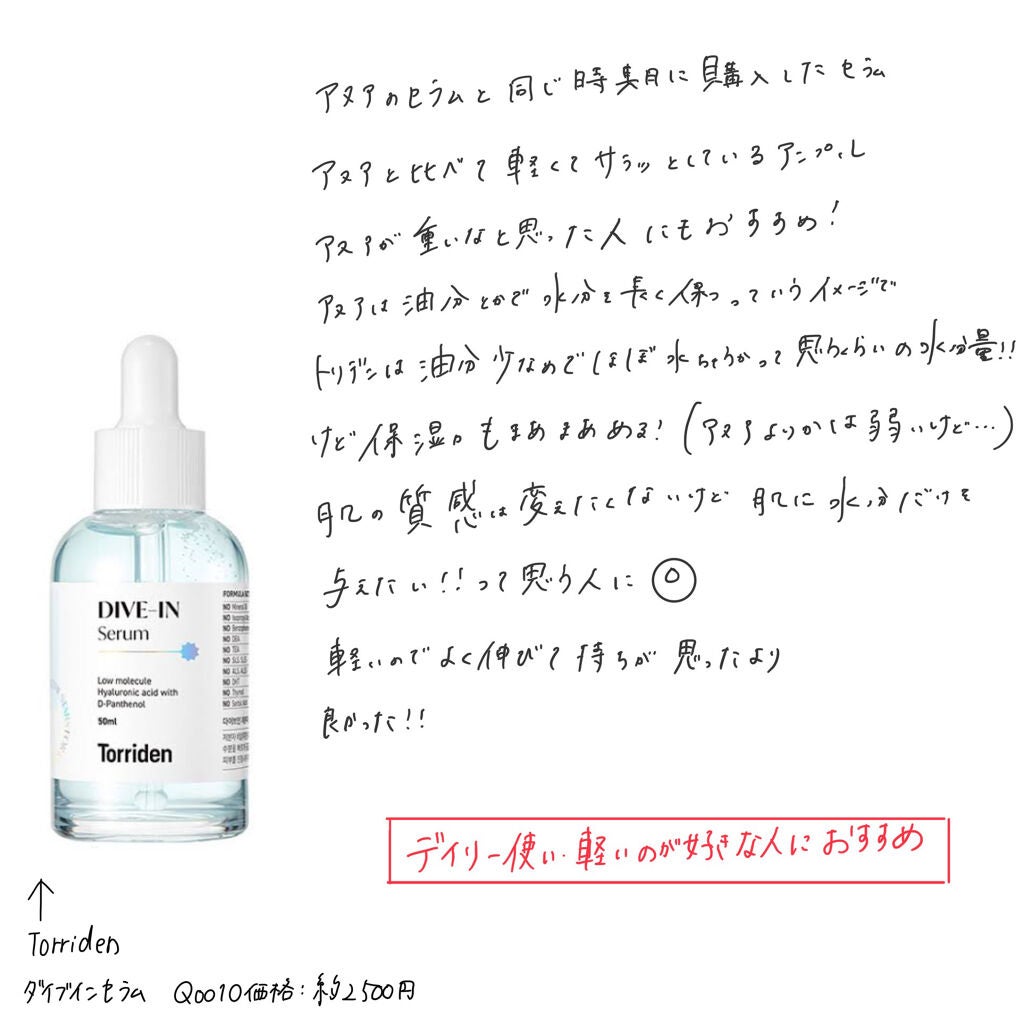 アヌアのセラムと同じ時期に購入したセラム
アヌアと比べて軽くてサラッとしているアンプル
アヌアが重いなと思った人にもおすすめ!
アヌアは油分とかで水分を長く保つっていうイメージで
トリデンは油分少なめでほぼ水ちゃうかって思うくらいの水分量!!
けど保湿力もまあまあある!(アヌアよりかは弱いけど…)
肌の質感は変えたくないけど肌に水分だけを
与えたい!!って思う人に◎
軽いのでよく伸びて持ちが思ったより
良かった!!
デイリー使い・軽いのが好きな人におすすめ
DIVE-IN
Serum
Low molecule
Hyaluronic acid with
D-Panthenol
50ml
Torriden
NO Mineral
NO
NO
NO DEA
NO TEA
NO SLS
NO
NO
NO
NO
↑
Torriden
ダイブインセラム Qoo10価格:約2500円